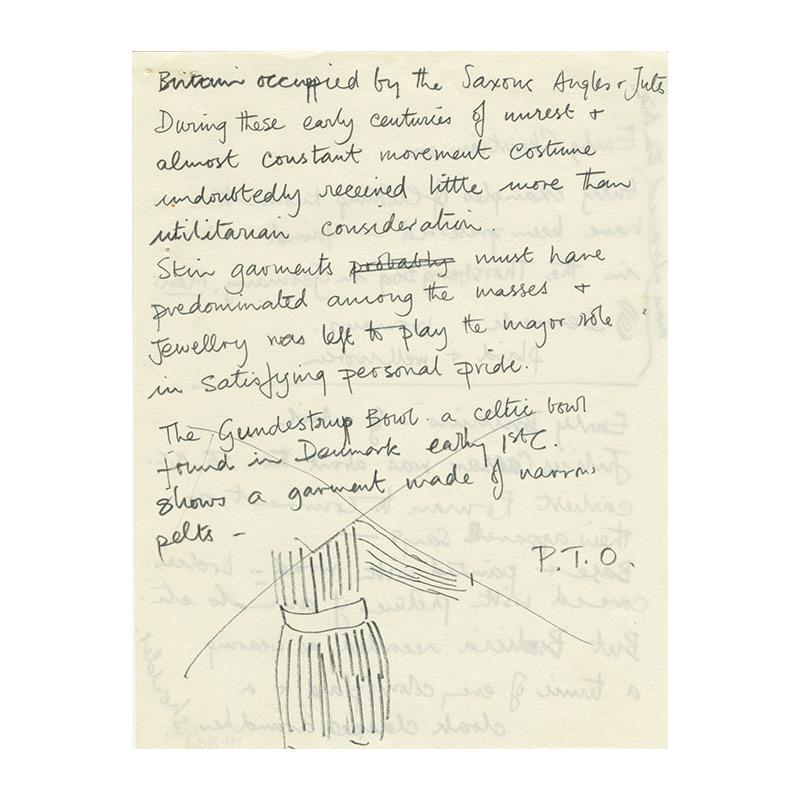 Britain occupied by the Saxons Angles + Jutes
During these early centuries of unrest +
almost constant movement costume
undoubtedly received little more than
utilitarian consideration.
Skin garments probably must have
predominated among the masses +
Jewellry was left to play the major role
in satisfying personal pride.
The Gundestrup Bowl. a celtic bowl
found in Denmark early 1st C.
shows a garment made of narrow
pelts -
P.T.O.